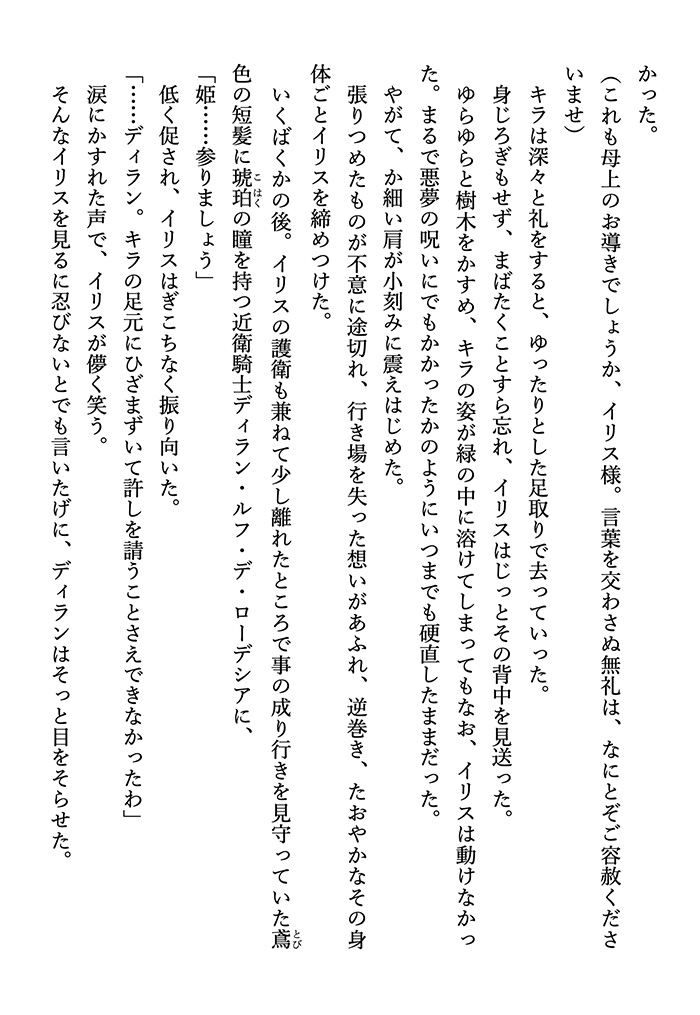 かった。
（これも母上のお導きでしょうか、イリス様。言葉を交わさぬ無礼は、なにとぞご容赦くださ
いませ）
キラは深々と礼をすると、ゆったりとした足取りで去っていった。
身じろぎもせず、まばたくことすら忘れ、イリスはじっとその背中を見送った。
ゆらゆらと樹木をかすめ、キラの姿が緑の中に溶けてしまってもなお、イリスは動けなかっ
た。まるで悪夢の呪いにでもかかったかのようにいつまでも硬直したままだった。
やがて、か細い肩が小刻みに震えはじめた。
張りつめたものが不意に途切れ、行き場を失った想いがあふれ、逆巻き、たおやかなその身
体ごとイリスを締めつけた。
いくばくかの後。イリスの護衛も兼ねて少し離れたところで事の成り行きを見守っていた鳶とび
色の短髪に琥珀こはくの瞳を持つ近衛騎士ディラン・ルフ・デ・ローデシアに、
「姫……参りましょう」
低く促され、イリスはぎこちなく振り向いた。
「……ディラン。キラの足元にひざまずいて許しを請うことさえできなかったわ」
涙にかすれた声で、イリスが儚く笑う。
そんなイリスを見るに忍びないとでも言いたげに、ディランはそっと目をそらせた。